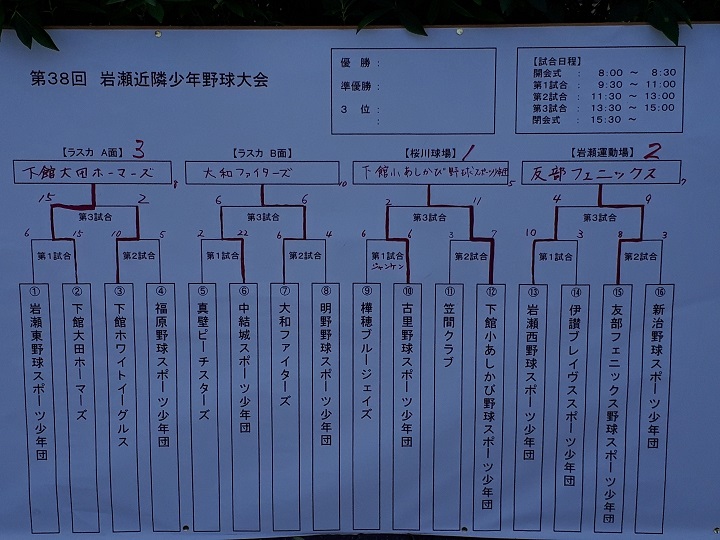 第38回 岩瀬近隣少年野球大会
優勝：
準優勝：
3位：
：
【試合日程】
開会式 ： 8:00 ～ 8:30
第1試合 ： 9:30 ～ 11:00
第2試合 ： 11:30 ～ 13:00
第3試合 ： 13:30 ～ 15:00
閉会式 ： 15:30 ～
【ラスカ A面】 3
【ラスカ B面】
【桜川球場】 1
【岩瀬運動場】 2
下館大田ホーマーズ 8
大和ファイターズ 10
下館小あしかび野球スポーツ少年団 5
友部フェニックス 7
15 2 6 6 2 11 4 9
第3試合 第3試合 第3試合 第3試合
6 15 10 5 2 22 6 4 6 6 3 7 10 3 8 3
第1試合 第2試合 第1試合 第2試合 第1試合 第2試合 第1試合 第2試合
ジャンケン
① 岩瀬東野球スポーツ少年団
② 下館大田ホーマーズ
③ 下館ホワイトイーグルス
④ 福原野球スポーツ少年団
⑤ 真壁ピーチスターズ
⑥ 中結城スポーツ少年団
⑦ 大和ファイターズ
⑧ 明野野球スポーツ少年団
⑨ 樺穂ブルージェイズ
⑩ 古里野球スポーツ少年団
⑪ 笠間クラブ
⑫ 下館小あしかび野球スポーツ少年団
⑬ 岩瀬西野球スポーツ少年団
⑭ 伊讃ブレイヴススポーツ少年団
⑮ 友部フェニックス野球スポーツ少年団
⑯ 新治野球スポーツ少年団